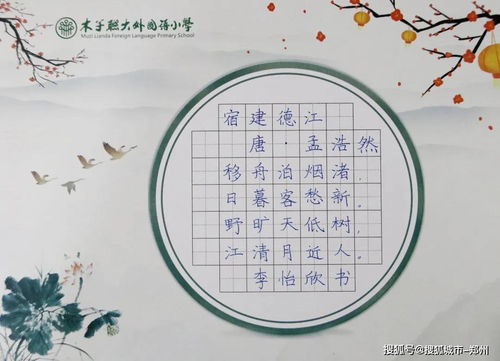 木子联大外国语小学
Muzi Lianda Foreign Language Primary School
宿建德江
唐·孟浩然
移舟泊烟渚，
日暮客愁新。
野旷天低树，
江清月近人。
李怡欣书
搜狐号@搜狐城市-郑州